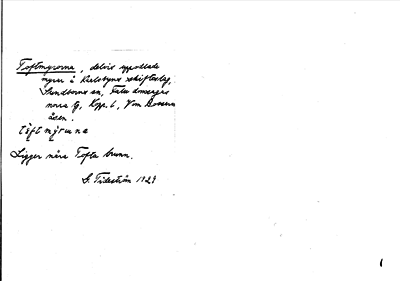 Toftmyrorna, delvis uppodlade
myrar å Karlsbyns skifteslag,
Sundborns sn, Falu domsagas
norra tg, Kopp. l., Vom Bossum
åsen.
tòftmỳruna
Ligger nära Tofta brunn.
G. Tideström 1929